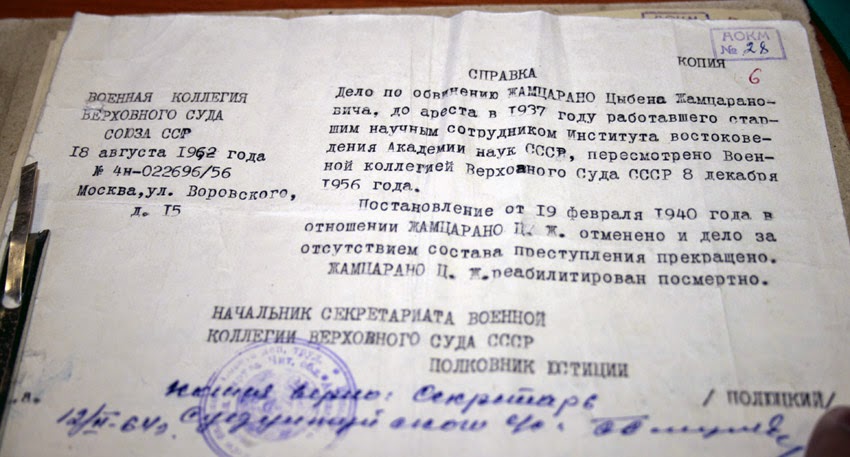 АОКМ
№ 28
КОПИЯ
6
СПРАВКА
ВОЕННАЯ КОЛЛЕГИЯ
ВЕРХОВНОГО СУДА
СОЮЗА ССР
18 августа 1962 года
№ 4н-022696/56
Москва, ул. Воровского,
д. 15
Дело по обвинению ЖАМЦАРАНО Цыбена Жамцарано-
вича, до ареста в 1937 году работавшего стар-
шим научным сотрудником Института востокове-
дения Академии наук СССР, пересмотрено Воен-
ной коллегией Верховного Суда СССР 8 декабря
1956 года.
Постановление от 19 февраля 1940 года в
отношении ЖАМЦАРАНО Ц. Ж. отменено и дело за
отсутствием состава преступления прекращено.
ЖАМЦАРАНО Ц. Ж. реабилитирован посмертно.
НАЧАЛЬНИК СЕКРЕТАРИАТА ВОЕННОЙ
КОЛЛЕГИИ ВЕРХОВНОГО СУДА СССР
ПОЛКОВНИК ЮСТИЦИИ
/ ПОЛЮЦКИЙ/
Копия верна: Секретарь